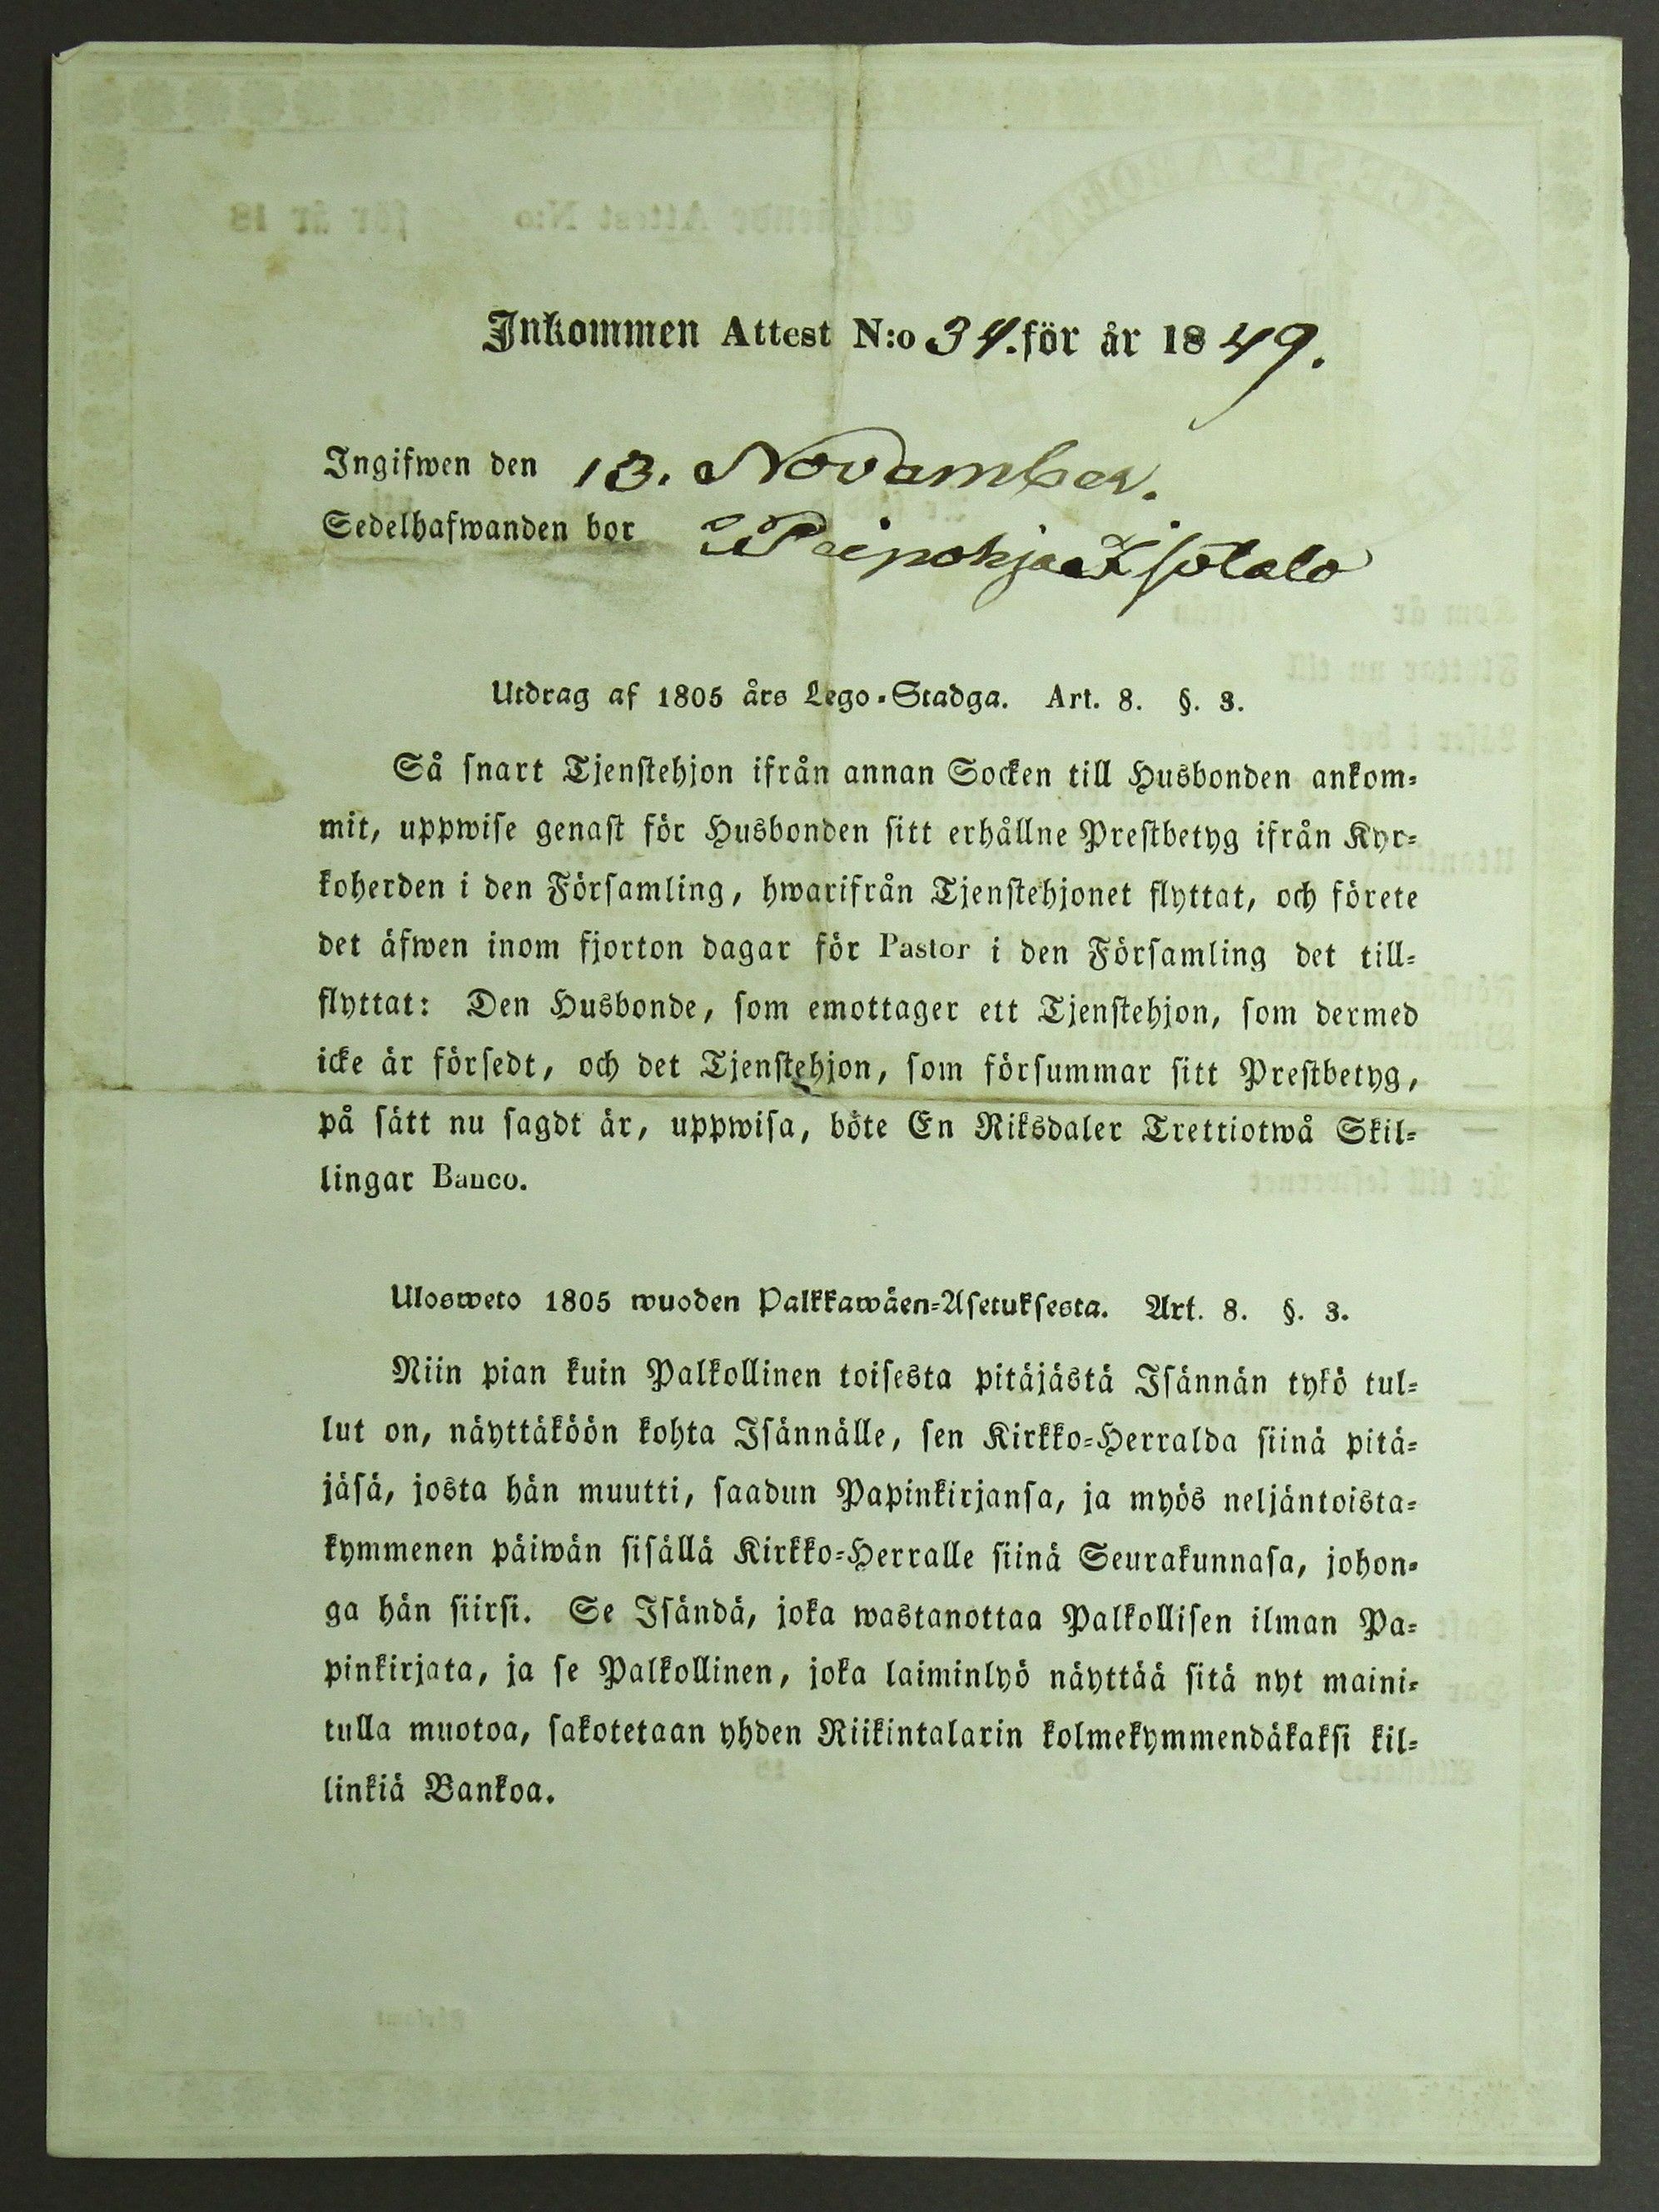 Inkommen Attest N:o 34. för år 1849.
Ingifwen den 13. November.
Sedelhafwanden bor Peipohja Isotalo
Utdrag af 1805 års Lego-Stadga. Art. 8. §. 3.
Så snart Tjenstehjon ifrån annan Socken till Husbonden ankom-
mit, uppwise genast för Husbonden sitt erhållne Prestbetyg ifrån Kyr-
koherden i den Församling, hwarifrån Tjenstehjonet flyttat, och förete
det äfwen inom fjorton dagar för Pastor i den Församling det till-
flyttat: Den Husbonde, som emottager ett Tjenstehjon, som dermed
icke är försedt, och det Tjenstehjon, som försummar sitt Prestbetyg,
på sätt nu sagdt är, uppwisa, böte En Riksdaler Trettiotwå Skil-
lingar Banco.
Ulosweto 1805 wuoden Palkkawäen-Asetuksesta. Art. 8. §. 3.
Niin pian kuin Palkollinen toisesta pitäjästä Isännän tykö tul-
lut on, näyttäköön kohta Isännälle, sen Kirkko-Herralda siinä pitä-
jäsä, josta hän muutti, saadun Papinkirjansa, ja myös neljäntoista-
kymmenen päiwän sisällä Kirkko-Herralle siinä Seurakunnasa, johon-
ga hän siirsi. Se Isändä, joka wastanottaa Palkollisen ilman Pa-
pinkirjata, ja se Palkollinen, joka laiminlyö näyttää sitä nyt maini-
tulla muotoa, sakotetaan yhden Riikintalarin kolmekymmendäkaksi kil-
linkiä Bankoa.